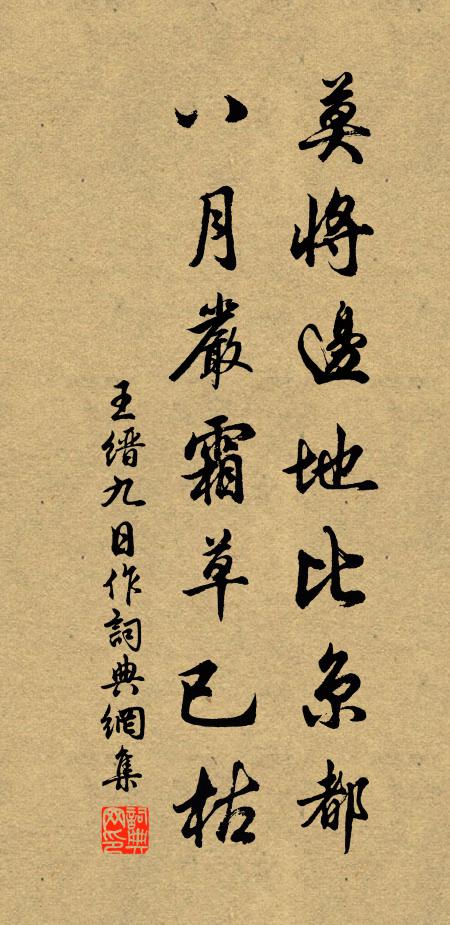 莫將邊地比京都
八月嚴霜草已枯
王缙九日作詞典網集
詞典网印